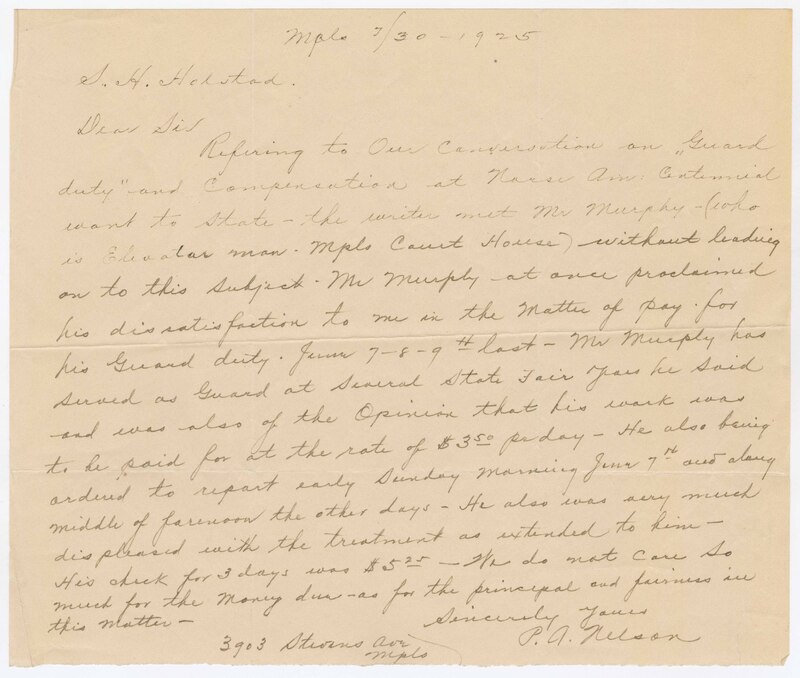 Mpls 7/30-1925
S. H. Holstad.
Dear Sir
Refering to Our Conversation on „Guard
duty" and Compensation at Norse Am: Centennial
want to State - the writer met Mr Murphy - (who
is Elivator man. Mpls Court House) without leading
on to this Subject. Mr Murphy - at once proclaimed
his dissatisfaction to me in the Matter of pay. for
his Guard duty. June 7-8-9th last - Mr Murphy has
served as Guard at Several State Fair Years he Said
and was also of the Opinion that his work was
to be paid for at the rate of $3.50 pr day - He also being
ordered to report early Sunday Morning June 7th and along
middle of forenoon the other days - He also was very much
displeased with the treatment as extended to him -
His check for 3 days was $5.25 - We do not Care So
much for the Money due - as for the principal and fairness in
this Matter -
Sincerely Yours
P. A. Nelson
3903 Stevens Ave
Mpls